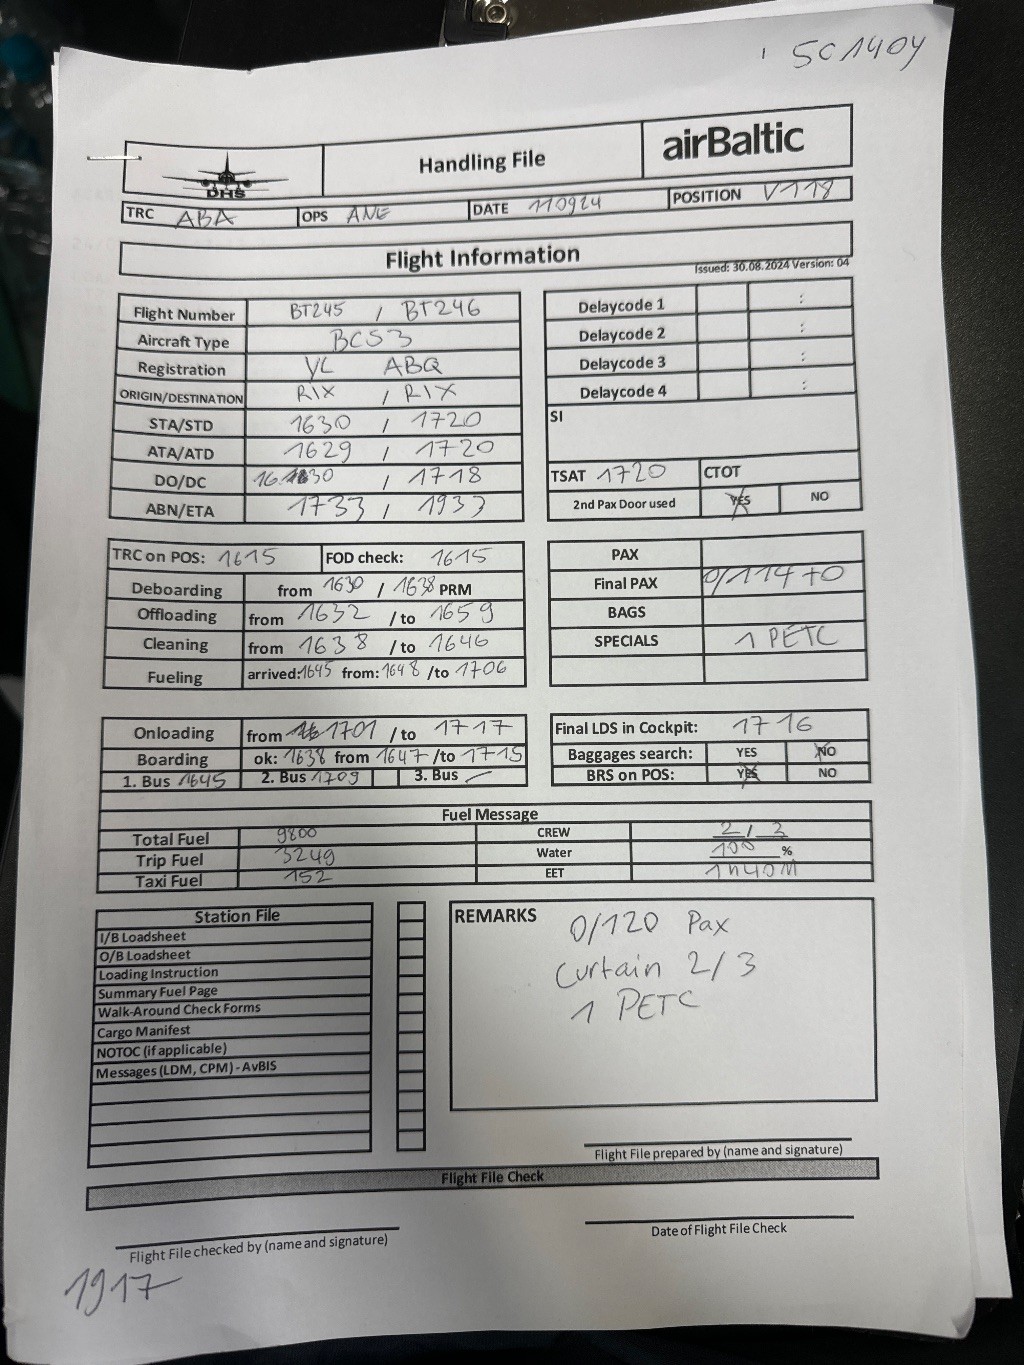 SC1404
DHS Handling File airBaltic
TRC ABA OPS ANE DATE 110924 POSITION V118
Flight Information
Issued: 30.08.2024 Version: 04
Flight Number BT245 / BT246
Aircraft Type BCS3
Registration YL ABQ
ORIGIN/DESTINATION RIX / RIX
STA/STD 1630 / 1720
ATA/ATD 1629 / 1720
DO/DC 1630 / 1718
ABN/ETA 1733 / 1933
Delaycode 1 :
Delaycode 2 :
Delaycode 3 :
Delaycode 4 :
SI
TSAT 1720 CTOT
2nd Pax Door used YES NO
TRC on POS: 1615 FOD check: 1615
Deboarding from 1630 / 1638 PRM
Offloading from 1632 / to 1659
Cleaning from 1638 / to 1646
Fueling arrived: 1645 from: 1648 /to 1706
PAX
Final PAX 0/114+0
BAGS
SPECIALS 1 PETC
Onloading from 1701 / to 1717
Boarding ok: 1638 from 1647 /to 1715
1. Bus 1645 2. Bus 1709 3. Bus –
Final LDS in Cockpit: 1716
Baggages search: YES NO
BRS on POS: YES NO
Fuel Message
Total Fuel 9800 CREW 2 / 3
Trip Fuel 3249 Water 100 %
Taxi Fuel 152 EET 1H40M
Station File
I/B Loadsheet
O/B Loadsheet
Loading Instruction
Summary Fuel Page
Walk-Around Check Forms
Cargo Manifest
NOTOC (if applicable)
Messages (LDM, CPM) - AvBIS
REMARKS 0/120 Pax
Curtain 2/3
1 PETC
Flight File prepared by (name and signature)
Flight File Check
Flight File checked by (name and signature)
Date of Flight File Check
1917